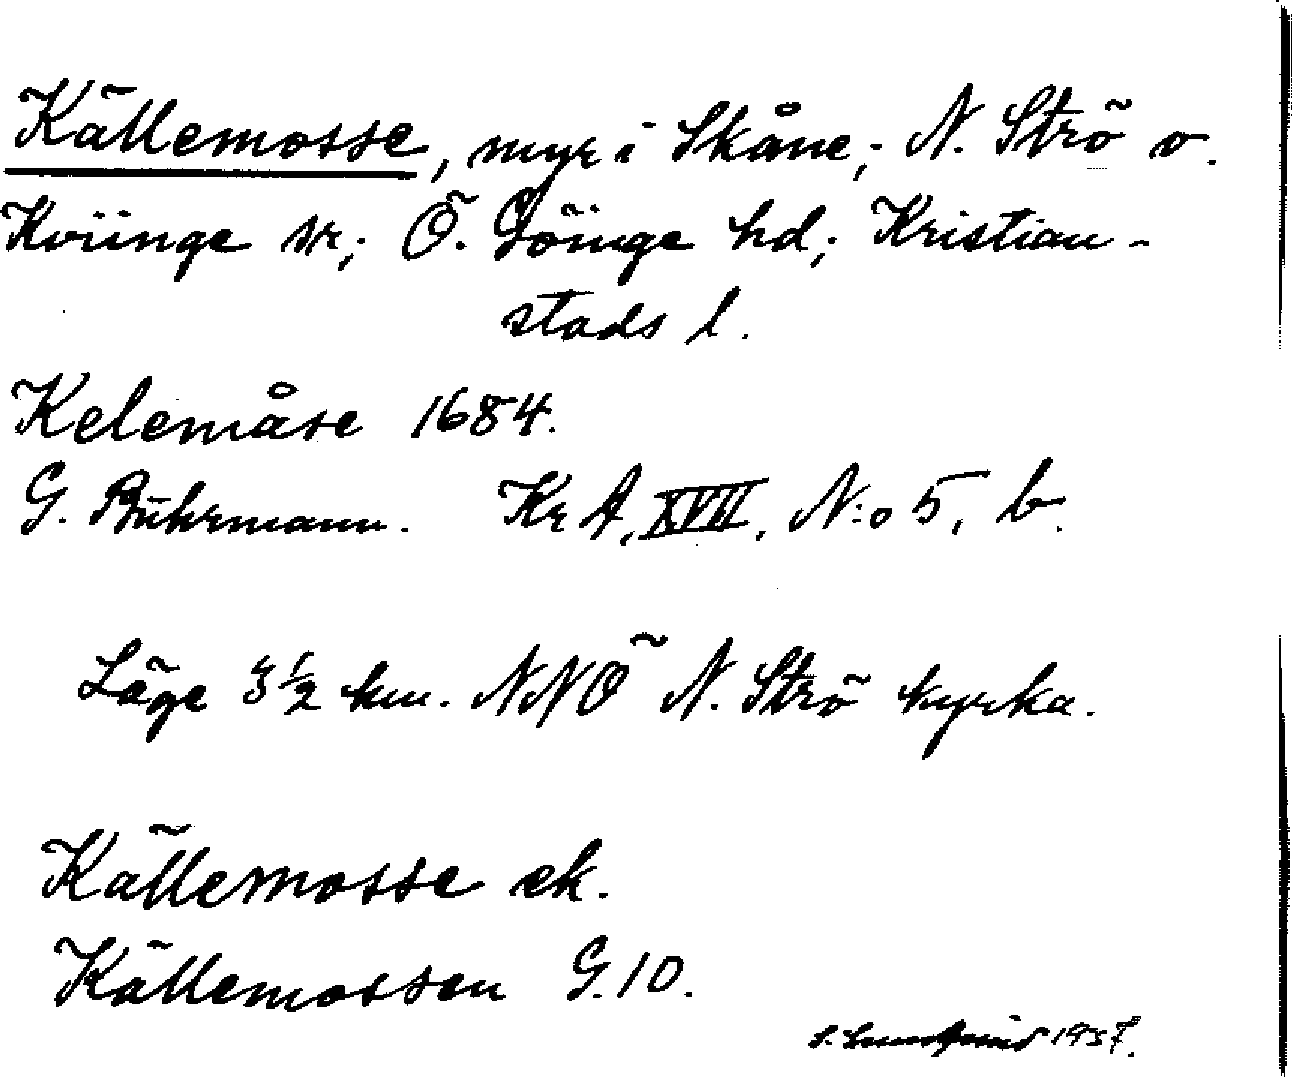 Källemosse, myr i Skåne; N. Strö o.
Kviinge sr; Ö. Göinge hd; Kristian-
stads l.
Kelemåse 1684.
G. Buhrmann. Kr A, XVII, N:o 5, b.
Läge 3 ½ km. NNÖ N. Strö kyrka.
Källemosse ek.
Källemossen G.10.
S. 1957.